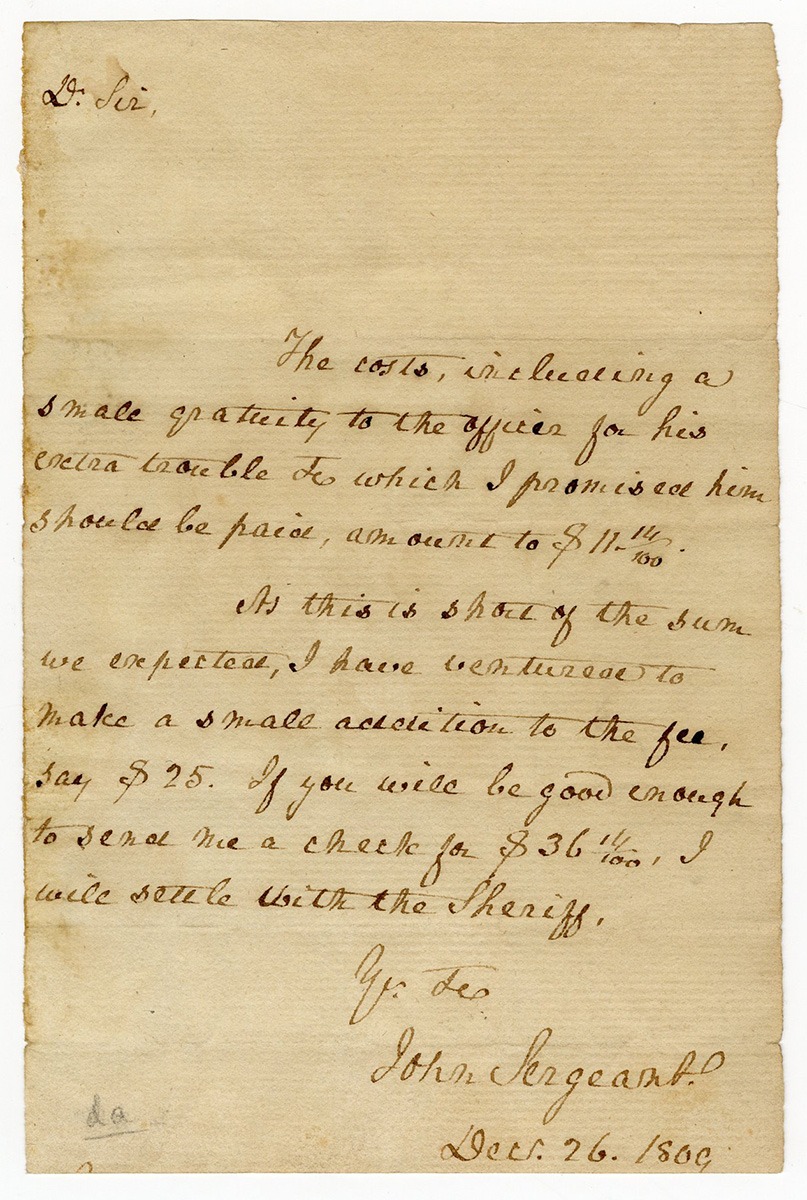 Dr. Sir,
The costs, including a
small gratuity to the officer for his
extra trouble &c which I promised him
should be paid, amount to $11 14/100.
As this is short of the sum
we expected, I have ventured to
make a small addition to the fee,
say $25. If you will be good enough
to send me a check for $36 14/100, I
will settle with the Sheriff.
Yr. &c
John Sergeant.
Decr. 26. 1809
da